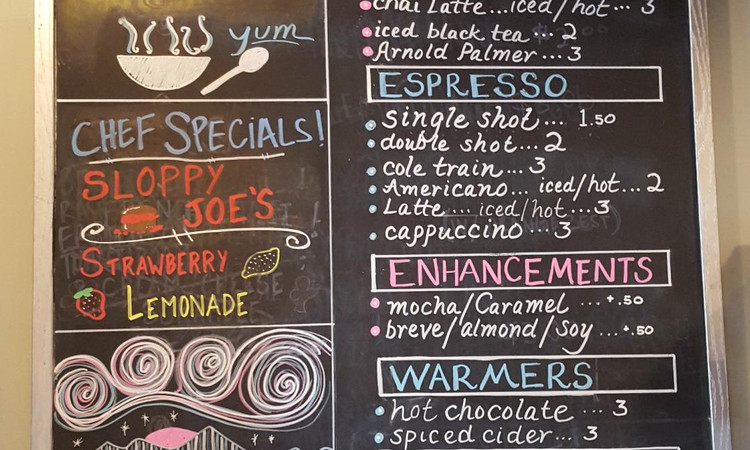 yum
CHEF SPECIALS!
SLOPPY
JOE'S
STRAWBERRY
LEMONADE
chai Latte...iced/hot... 3
iced black tea ... 2
Arnold Palmer... 3
ESPRESSO
single shot... 1.50
double shot... 2
cole train... 3
Americano... iced/hot... 2
Latte.... iced/hot... 3
cappuccino ... 3
ENHANCEMENTS
mocha/Caramel ...+.50
breve/almond/Soy ...+.50
WARMERS
hot chocolate ... 3
spiced cider... 3